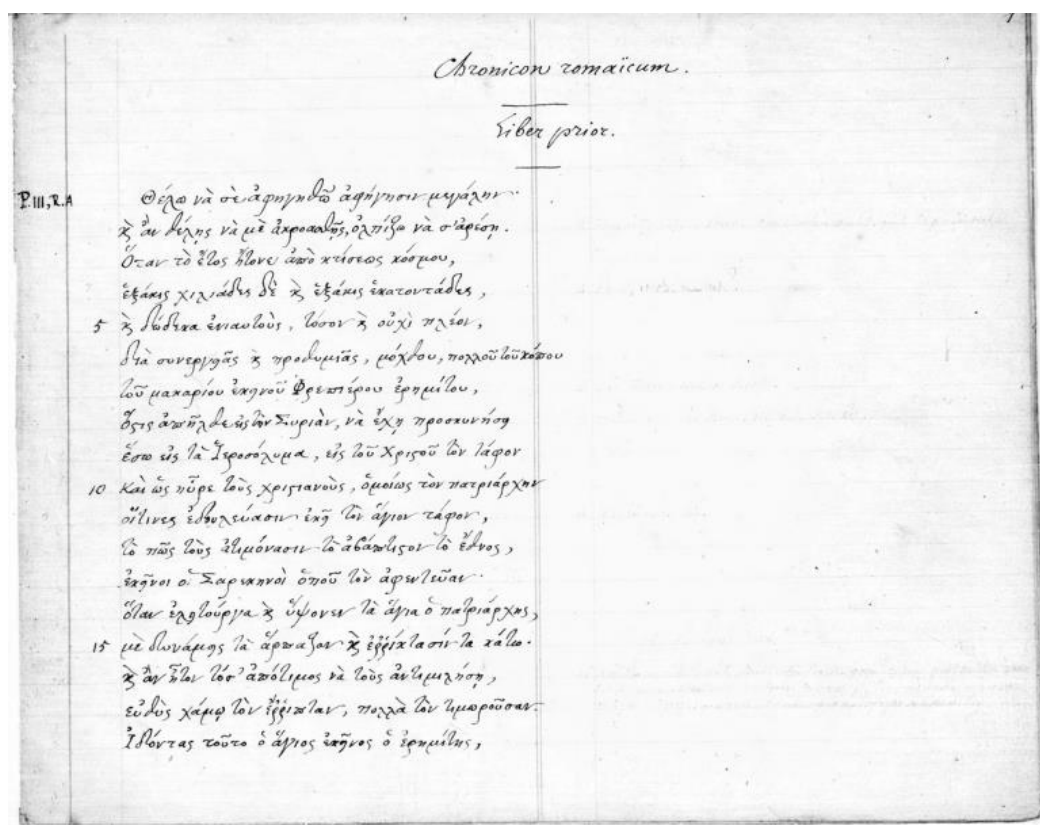 Chronicon romaïcum.
Liber prior.
P. III, R. A
Θέλω νὰ σὲ ἀφηγηθῶ ἀφήγησιν μεγάλην·
ϗ ἂν θέλῃς νὰ μὲ ἀκροασθῇς, ὀλπίζω νὰ σ' ἀρέσῃ.
Ὅταν τὸ ἔτος ἦτονε ἀπὸ κτίσεως κόσμου,
ἑξάκις χιλιάδες δὲ ϗ ἑξάκις ἑκατοντάδες,
5 ϗ δώδεκα ἐνιαυτοὺς, τόσον ϗ οὐχὶ πλέον,
διὰ συνεργῃᾶς ϗ προθυμιᾶς, μόχθου, πολλοῦ τοῦ κόπου
τοῦ μακαρίου ἐκῃνοῦ Φρεπιέρου ἐρημίτου,
ὅςις ἀπῆλθε εἰς τὴν Συριὰν, νὰ ἔχῃ προσκυνήσῃ
ἔσω εἰς τὰ Ἱεροσόλυμα, εἰς τοῦ Χριςοῦ τὸν τάφον
10 Καὶ ὡς ηὗρε τοὺς χριςιανοὺς, ὁμοίως τὸν πατριάρχην
οἵτινες ἐδουλεύασιν ἐκῇ τὸν ἅγιον τάφον,
τὸ πῶς τοὺς ἀτιμόνασιν τὸ ἀβάπτιςον τὸ ἔθνος,
ἐκῇνοι οἱ Σαρακηνοὶ ὁποῦ τὸν ἀφεντεῦαν·
ὅταν ἐλῃτούργα ϗ ὕψονεν τὰ ἅγια ὁ πατριάρχης,
15 μὲ δυνάμῃς τὰ ἅρπαζον ϗ ἐῤῥίκτασίν τα κάτω·
ϗ ἂν ἦτον τόσ' ἀπότιμος νὰ τοὺς ἀντιμιλήσῃ,
εὐθὺς χάμω τὸν ἔῤῥιπταν, πολλὰ τὸν τιμωροῦσαν·
Ἰδόντας τοῦτο ὁ ἅγιος ἐκῇνος ὁ ἐρημίτης,